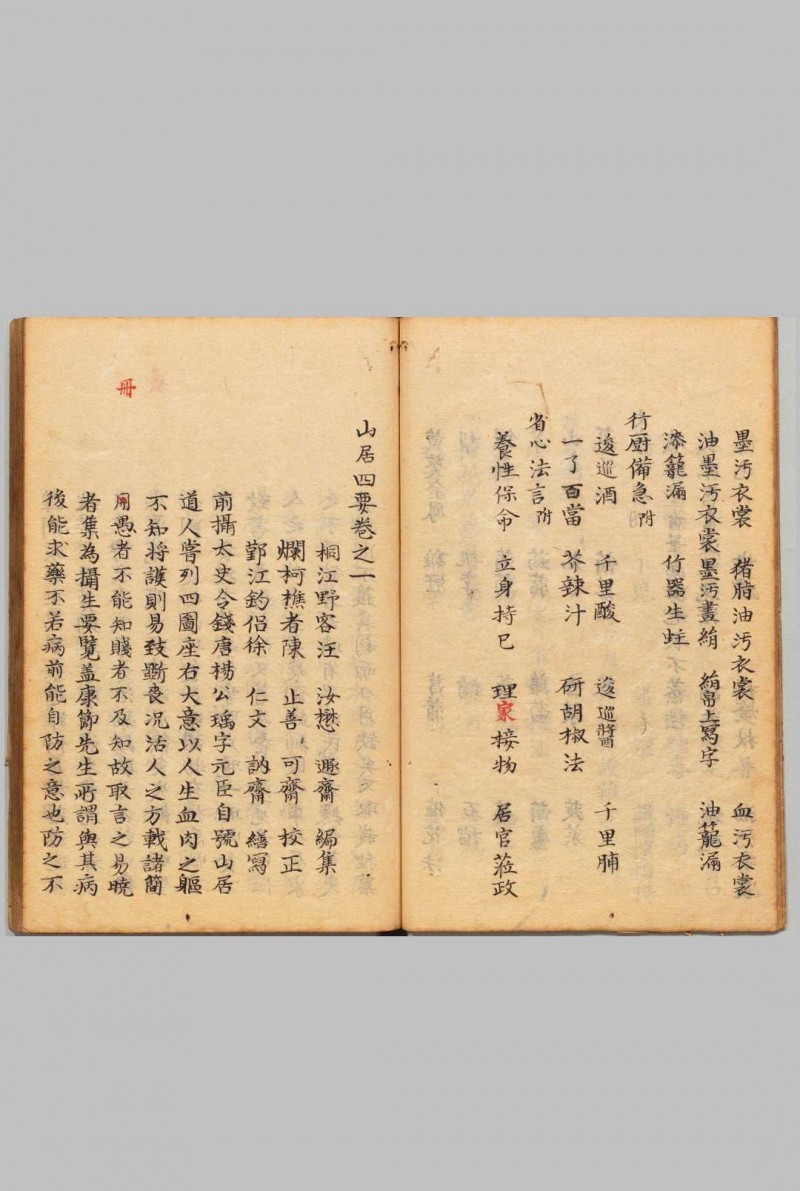 墨汚衣裳 猪脂油汚衣裳 血汚衣裳
油墨汚衣裳 墨汚畫絹 絹帛上寫字 油籠漏
漆籠漏 竹器生蛀
行厨備急附
逡巡酒 千里酸 逡巡醬 千里脯
一了百當 芥辣汁 研胡椒法
省心法言附
養性保命 立身持已 理家接物 居官莅政
山居四要卷之一
桐江野客汪 汝懋 遯齋 編集
爛柯樵者陳 止善 可齋 校正
鄞江釣侣徐 仁文 訥齋 繕寫
前攝太史令錢唐楊公瑀字元臣自號山居
道人嘗列四圖座右大意以人生血肉之軀
不知將護則易致斵喪况活人之方載諸簡
冊
用愚者不能知賤者不及知故取言之易曉
者集為攝生要覽盖康節先生所謂與其病
後能求藥不若病前能自防之意也防之不